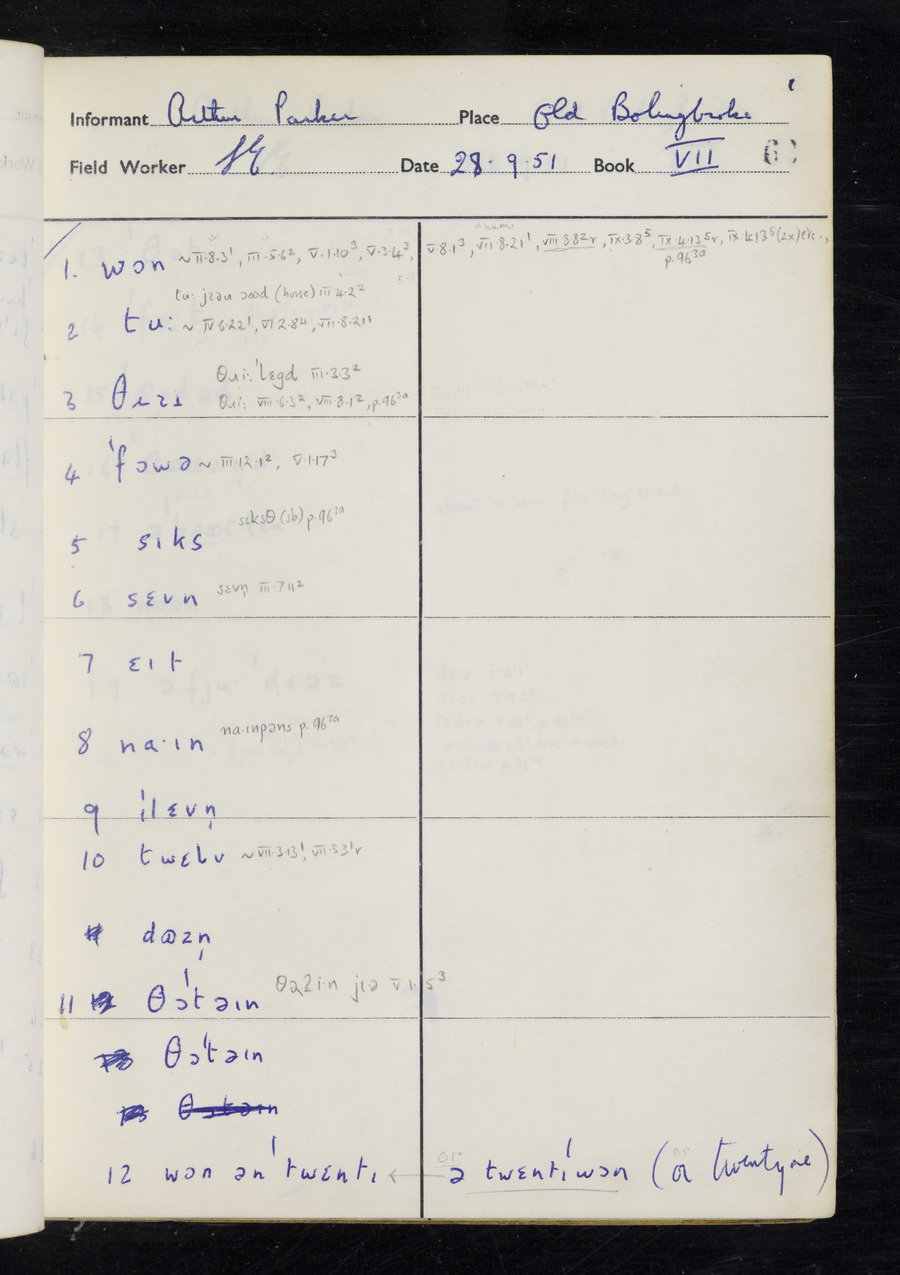 Informant Arthur Parker Place Old Bolingbroke
Field Worker Date 28.9.51 Book VII
1. wɔn ~ II.8.3¹, III.5.6², V.1.10³, V.3.4³, V.8.1³, VII.8.21¹, VIII.8.8²r, IX.3.8⁵, IX.4.13⁵r, IX.4.13⁵(2x) etc.,
p.96³ᵃ
(horse) III.4.2²
2 tu: ~ IV.6.22¹, VI.2.8⁴, VII.8.21¹
θɹi:ˈlɛgd III.3.3²
3 θɹɪ θɹi: VIII.6.3², VIII.8.1², p.96³ᵃ
4 ˈfɔwə ~ III.12.1², V.1.17³
sɪksθ (sb) p.96³ᵃ
5 sɪks
6 sɛvn sɛvn̩ III.7.11²
7 ɛɪt
8 na·ɪn na·ɪnpəns p.96³ᵃ
9 ɪˈlɛvn̩
10 twɛlv ~ VII.3.13¹, VII.5.3¹r
dʊzn̩
11 θəˈtəɪn θəʔi:n jɪə VI.5³
θəˈtəɪn
12 wɔn ənˈtwɛntɪ ← or ə twɛntɪˈwɔn (or a twentyone)